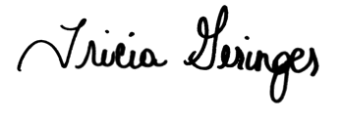 Tricia Geringes